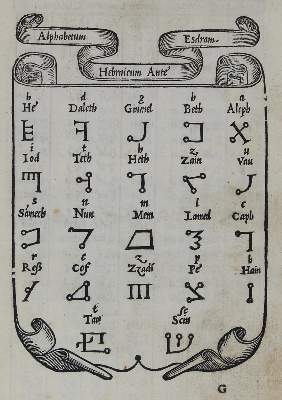 Alphabetum Esdram
Hebraicum Ante
h d g b a
He Daleth Gimel Beth Aleph
i t h z u
Iod Teth Heth Zain Vau
s n m l c
Samech Nun Mem Lamed Caph
r c z p h
Ress Cof Zzadi Pe Hain
t sc
Tau Scin
G